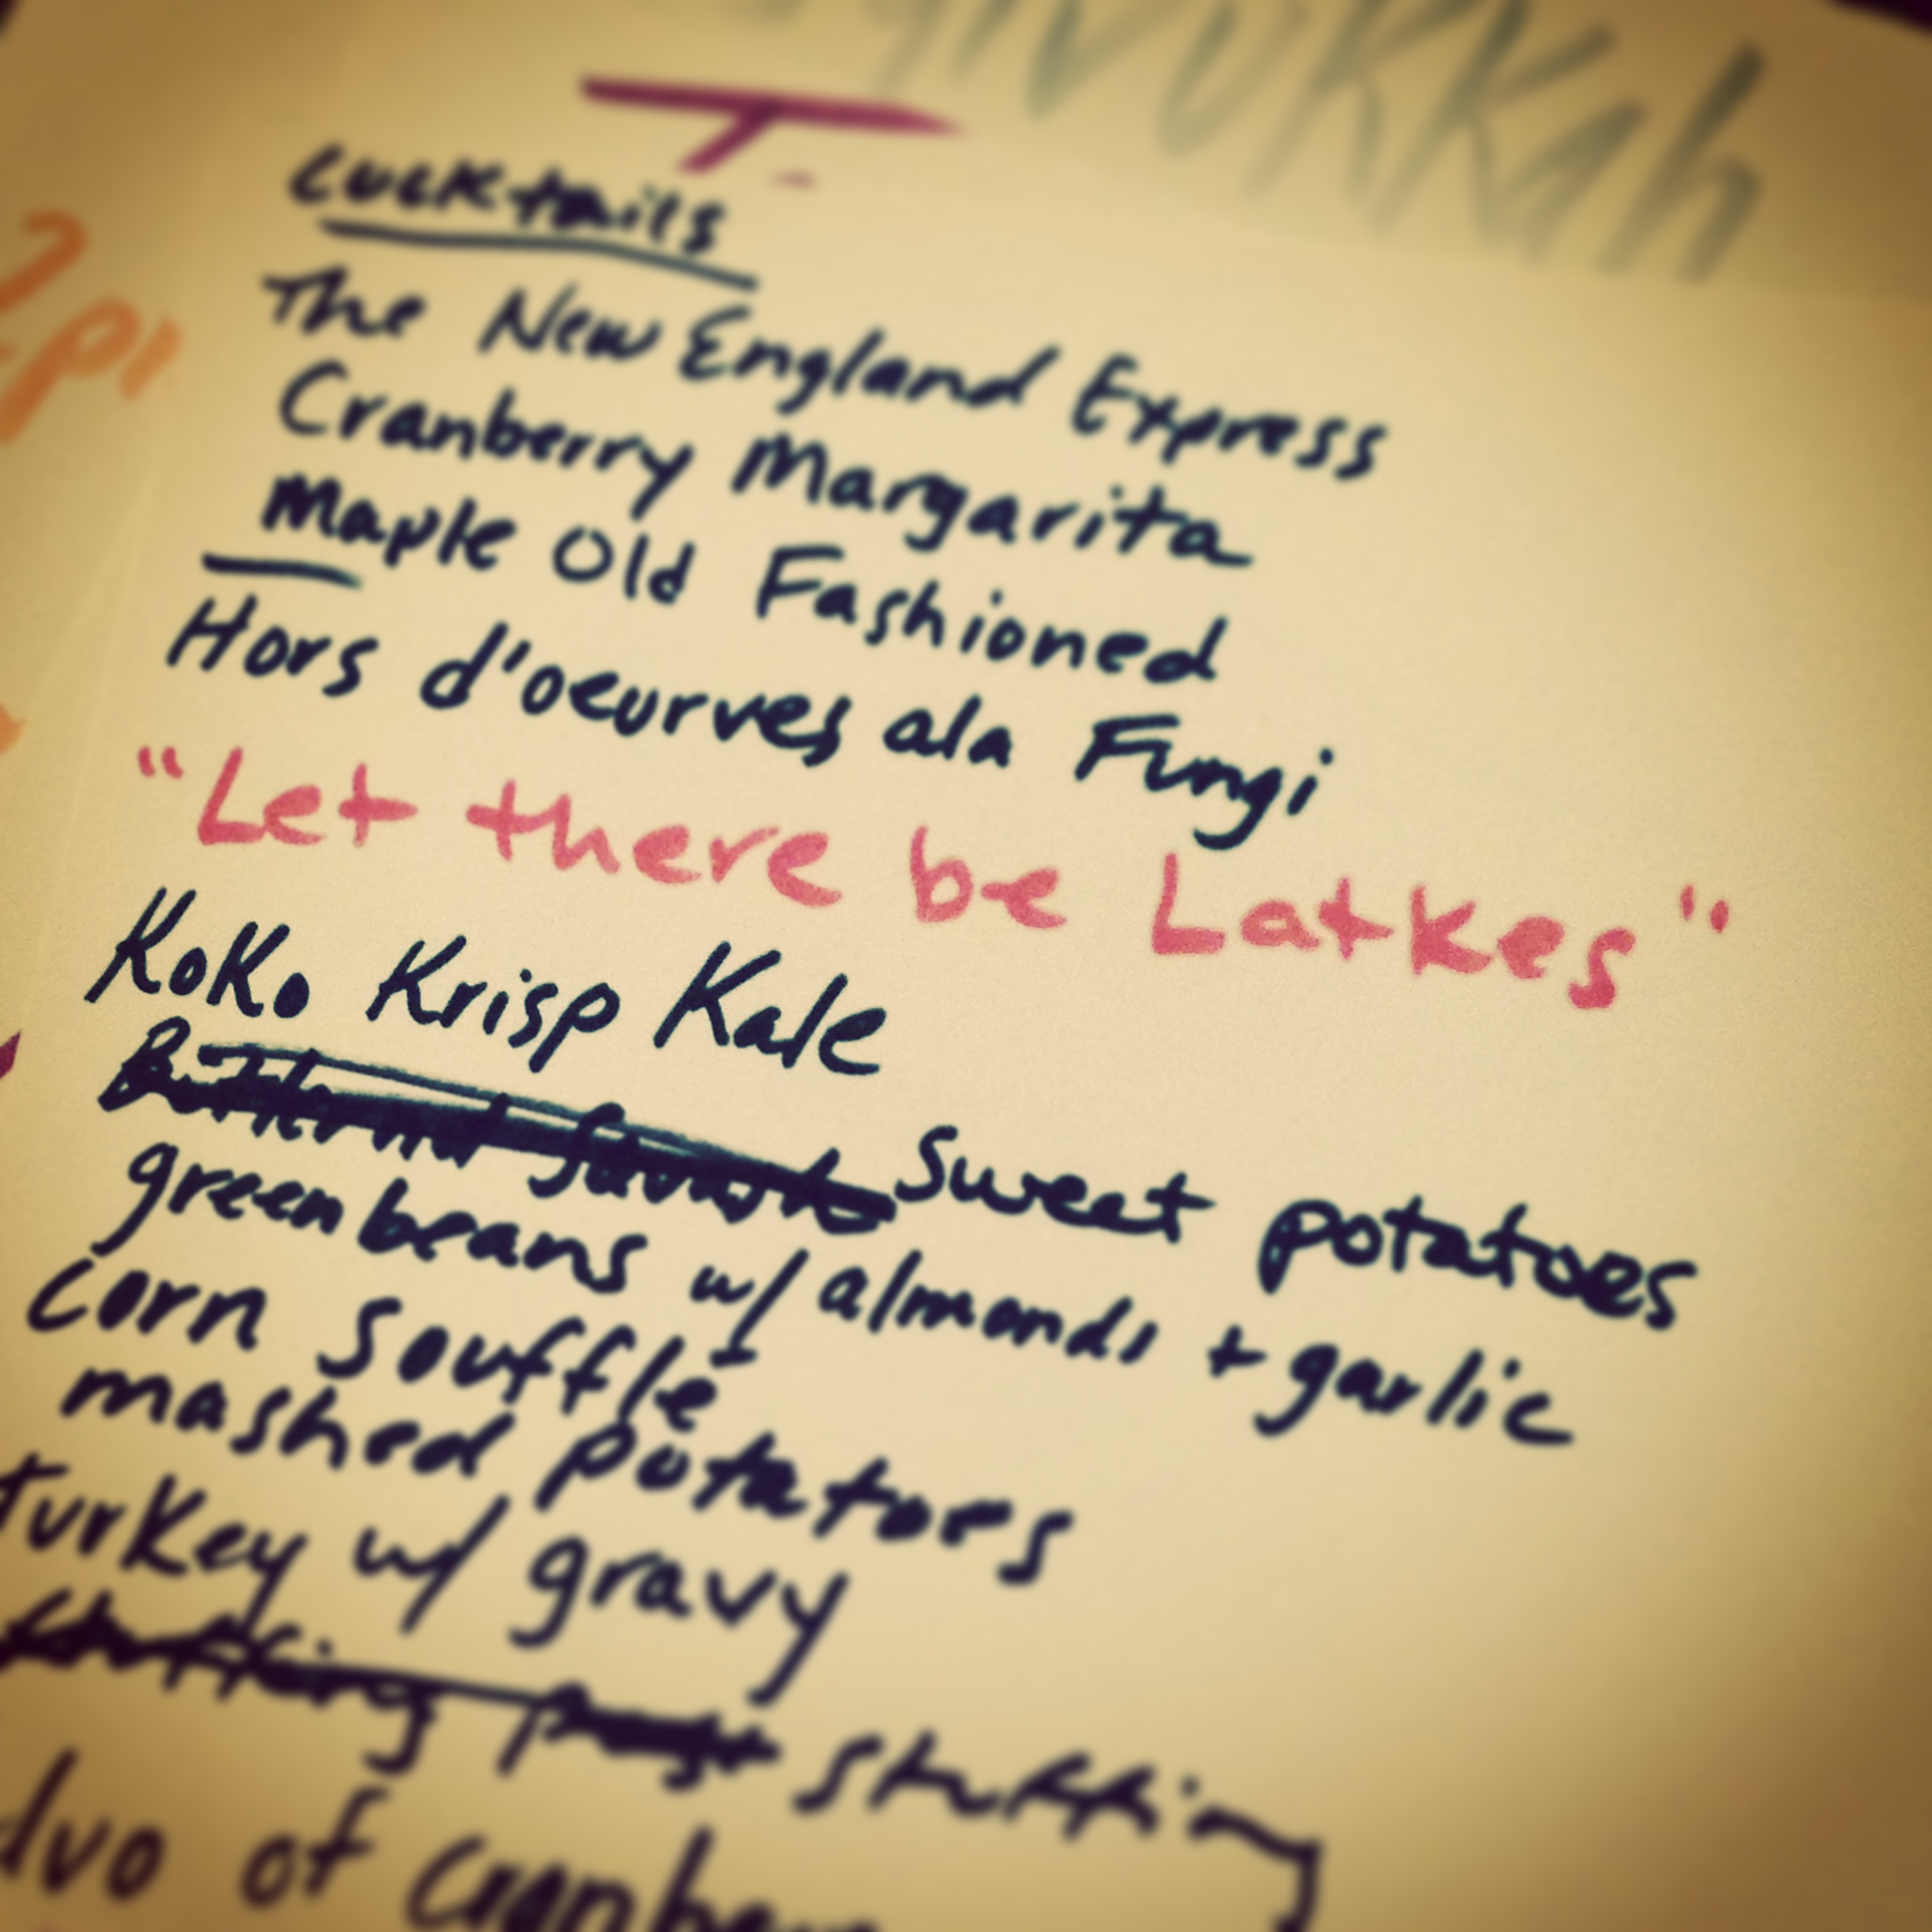 Cocktails
The New England Express
Cranberry Margarita
Maple Old Fashioned
Hors d'oeurves ala Fungi
"Let there be Latkes"
KoKo Krisp Kale
Sweet potatoes
green beans w/ almonds + garlic
Corn Souffle
mashed potatoes
turkey w/ gravy
stuffing
duo of